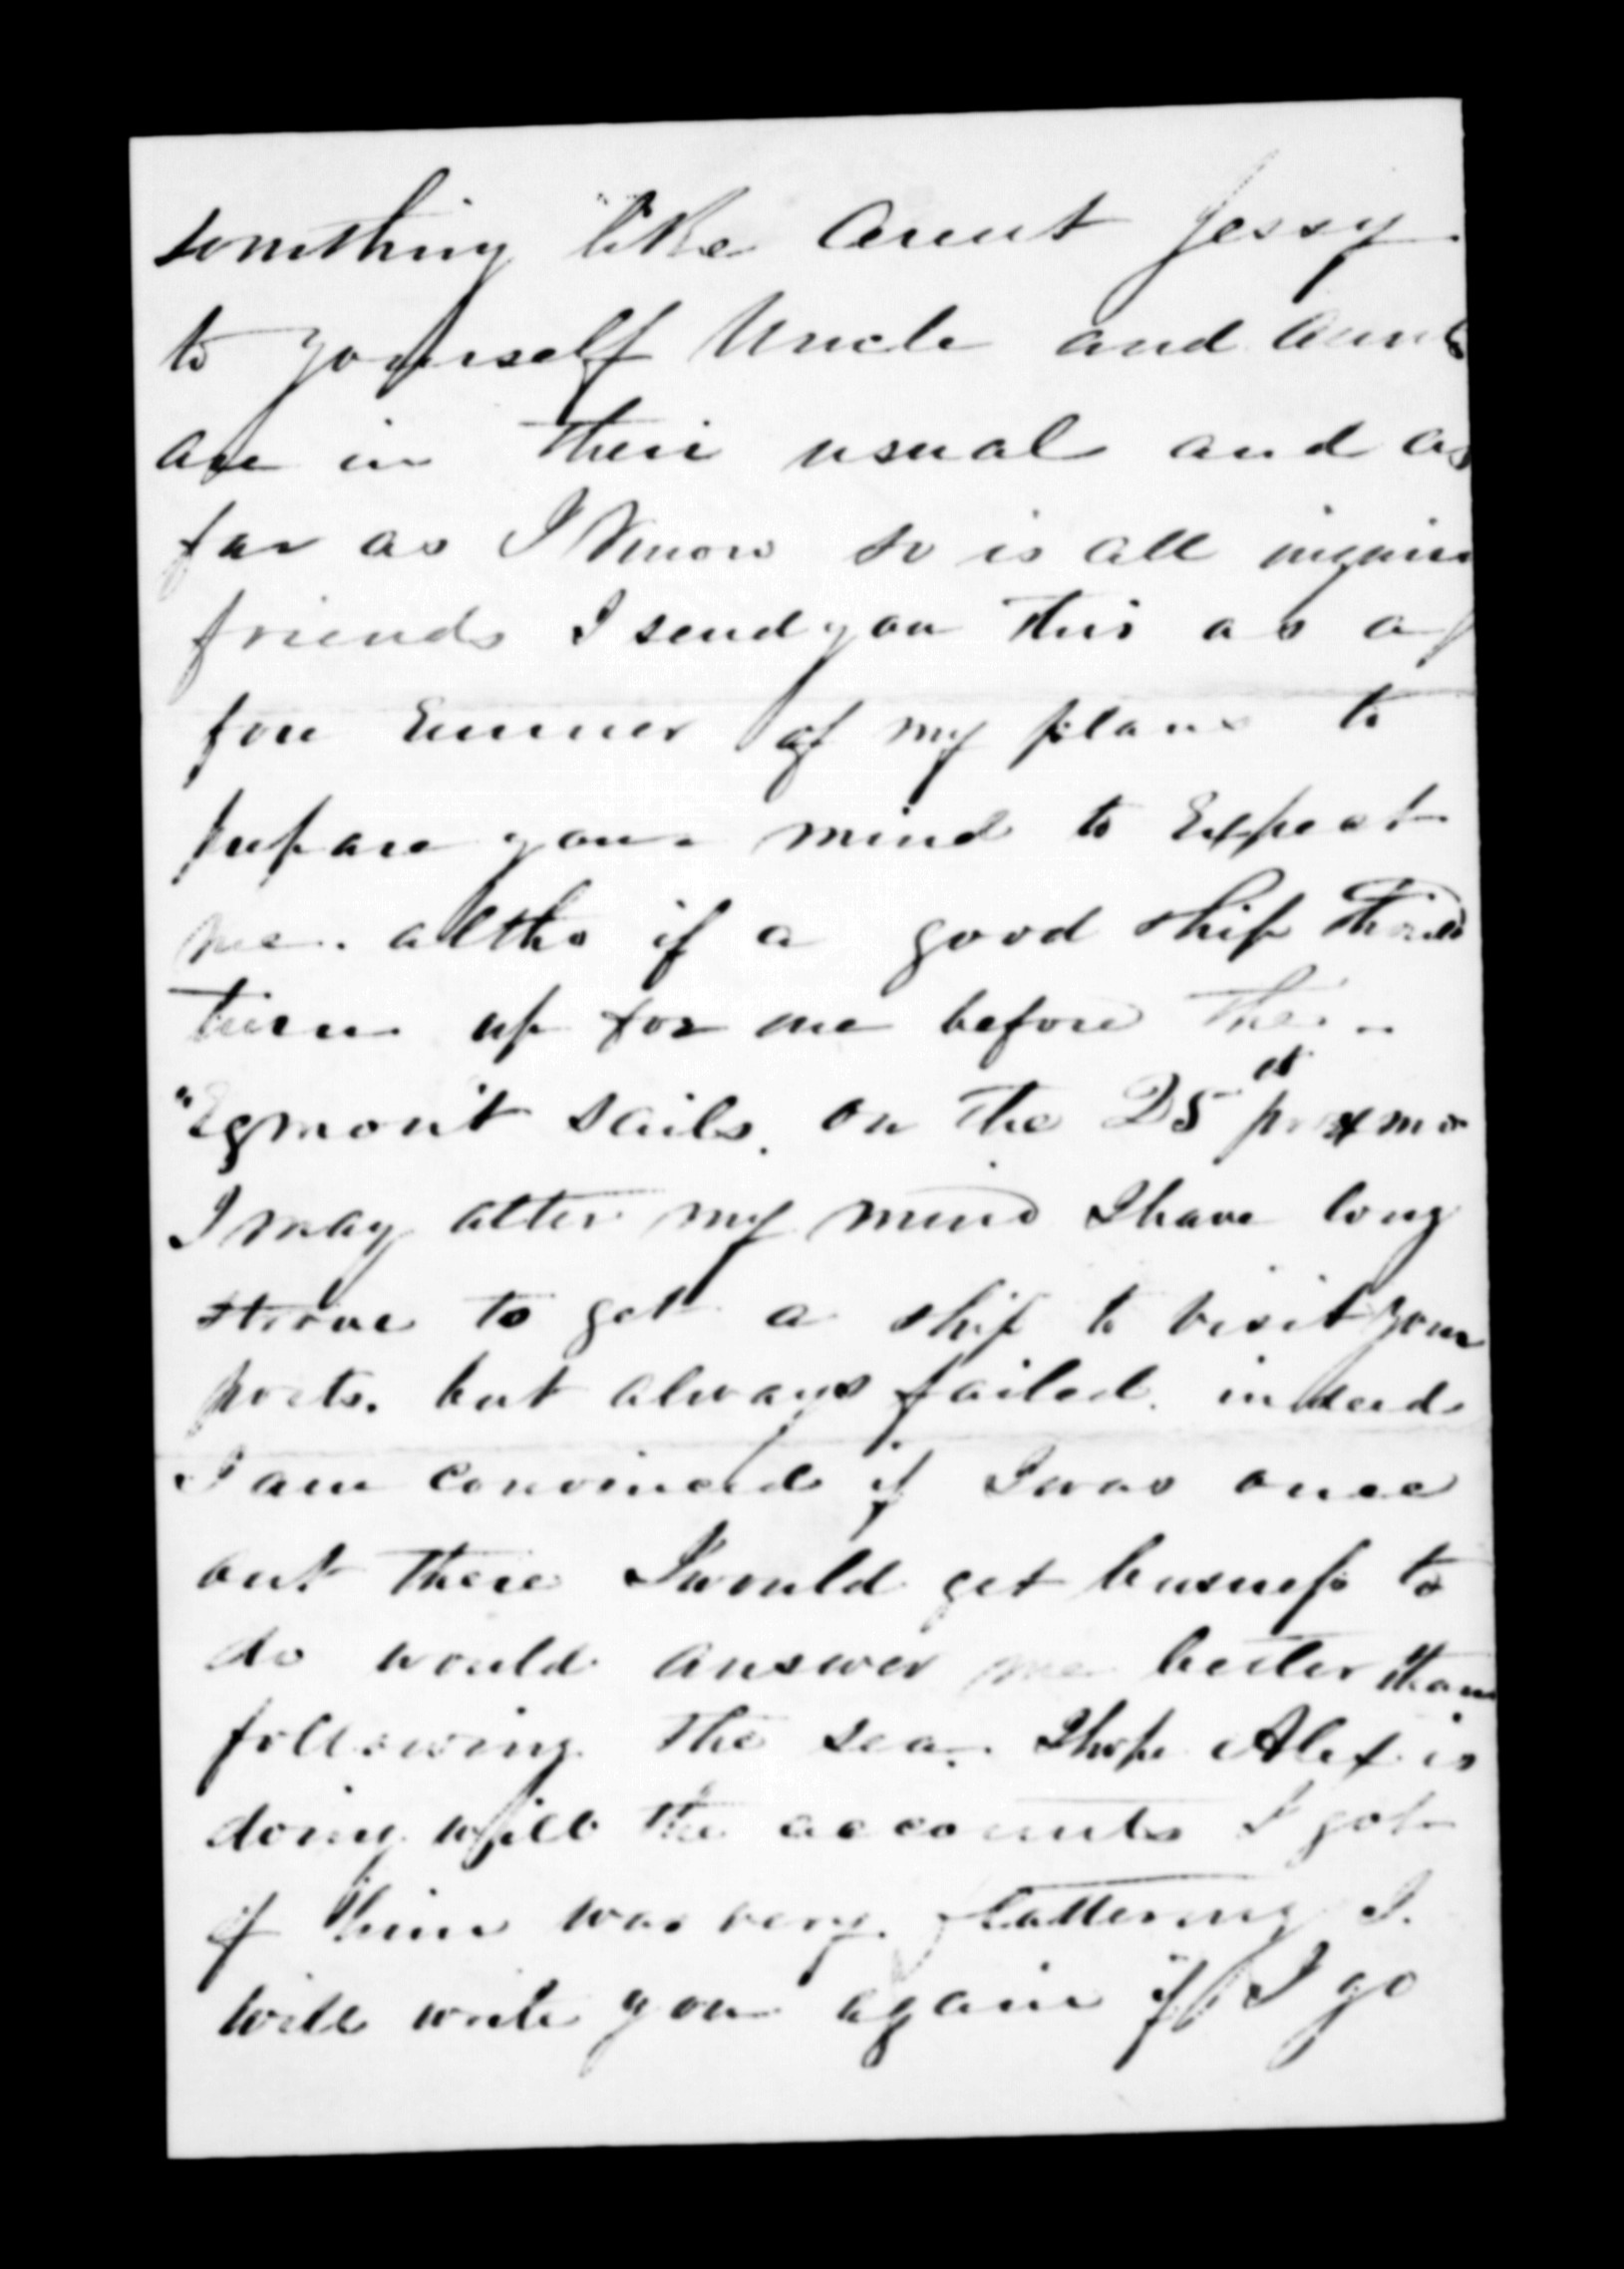 something "like Aunt Jessy
to yourself Uncle and Aunt
are in their usual and as
far as I Know so is all
friends I send you this as a
fore Runner of my plans to
prepare your mind to Expect
me. altho if a good ship should
turn up for me before the
"Egmont sails. on the 25st proxmo
I may alter my mind I have long
strove to get a ship to visit your
ports. but always failed. indeed
I am convinced if I was once
out there I would get business to
do would answer me better than
following the sea. I hope Alex is
doing well the accounts I got
of him was very flattering I.
will write you again if I go